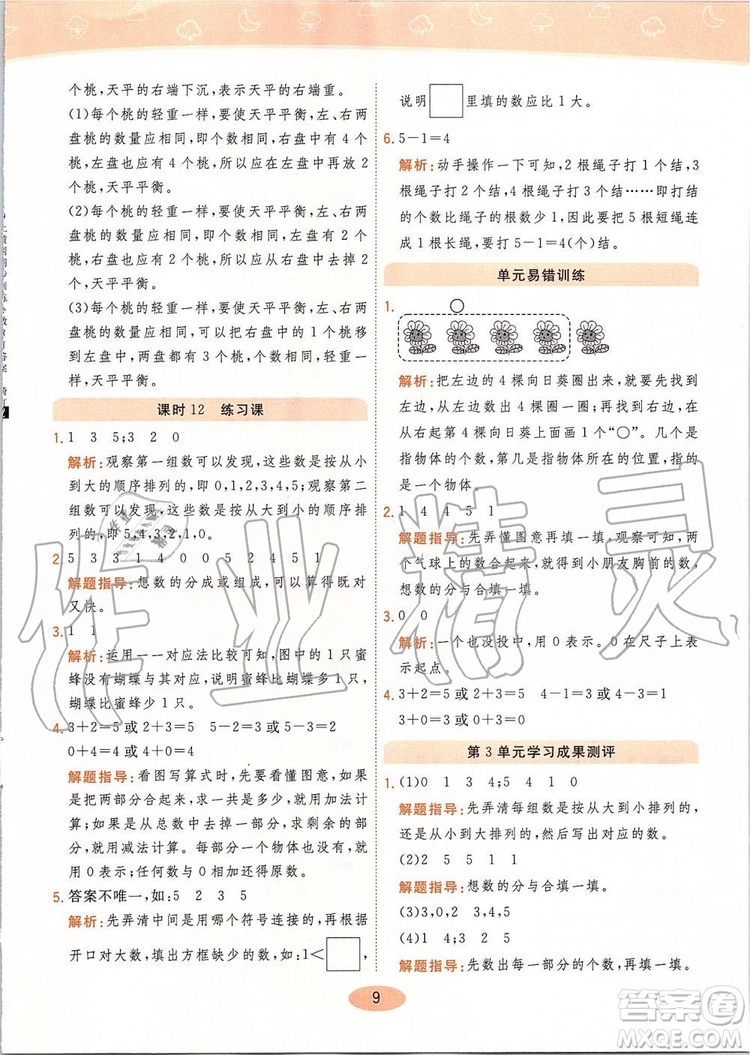 个桃,天平的右端下沉,表示天平的右端重。
(1)每个桃的轻重一样,要使天平平衡,左、右两
盘桃的数量应相同,即个数应相同,右盘有 4 个
桃,左盘也应有 4 个桃,所以应在左盘放 4 个
桃,天平平衡。
(2)每个桃的轻重一样,要使天平平衡,左、右两
盘桃的数量应相同,即个数应相同,左盘有 2 个
桃,右盘也应有 2 个桃,所以应在右盘去掉 2 个
桃,天平平衡。
(3)每个桃的轻重一样,要使天平平衡,左、右两
盘桃的数量应相同,即个数应相同,右盘中的 1 个桃
移到左盘中,两盘都有 3 个桃,个数相同,轻重一样,
天平平衡。
课时 12 练习课
1. 1 3 5;3 2 0
解析:观察第一组数可以发现,这些数是按从小
到大的顺序排列的,即 0,1,2,3,4,5;观察第二
组数可以发现,这些数是按从大到小的顺序排
列的,即 5,4,3,2,1,0。
2. 5 3 3 1 4 0 0 2 5 2 4 5 1
解题指导:想数的分成或组成,可以算得既对
又快。
3. 1 1
解析:运用一一对应法比较可知,图中的 1 只蜜
蜂没有蝴蝶与其对应,说明蜜蜂比蝴蝶多 1 只,
蝴蝶比蜜蜂少 1 只。
4. 3+2=5 或 2+3=5 5-2=3 或 5-3=2
0+4=4 或 4+0=4
解题指导:看图写算式时,要先看懂图意,如
果是把两部分合起来,求一共是多少,就用加法计
算;如果是从总数中去掉一部分,求剩余的部分,
就用减法计算。每部分一个物体也没有时,一般
用 0 表示;任何数与 0 相加都得原数。
5. 答案不唯一,如:5 2 3 5
解析:先弄清中间是用哪个符号连接的,根据
开口对大数,填出方框缺少的数,如:1<□,
说明□里填的数应比 1 大。
6. 5-1=4
解析:动手操作一下可知,2 根绳子打 1 个结,3
根绳子打 2 个结,4 根绳子打 3 个结……即打结
的个数比绳子的根数少 1,因此要把 5 根短绳连
成 1 根长绳,要打 5-1=4(个)结。
单元易错训练
1.
解析:把左边的 4 棵向日葵圈出来,再从右边数
到第 4 棵向日葵,在第 4 棵向日葵上面画 1 个“○”。几个是
指物体的个数,第几是指物体所在的位置,指的
是一个物体。
2. 1 4 4 5 1
解题指导:先弄懂图意再填一填。观察可知,两
个气球上的数合起来就得到小朋友胸前的数,
想数的分与合填一填。
3. 0 0
解析:一个也没投中,用 0 表示;0 在尺子上表
示起点。
4. 3+2=5 或 2+3=5 4-1=3 或 4-3=1
3+0=3 或 0+3=3
第 3 单元学习成果测评
1. (1)0 1 3 4;5 4 1 0
解题指导:先弄清每组数是按从大到小排列的,
还是从小到大排列的,然后写出对应的数。
(2)2 5 5 1 1
解题指导:想数的分与合填一填。
(3)3,0,2 3,4,5
(4)1 4;3 2 5
解题指导:先数出每一部分的个数,再填一填。
9
作业精灵
答案圈
MXQE.COM